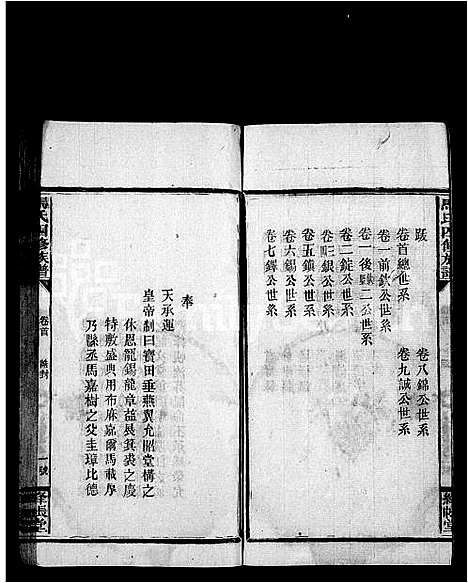 馬氏四修族譜
跋
卷首總世系
卷一前欽公世系
卷一後驥二公世系
卷二錠公世系
卷三銀公世系
卷五鎮公世系
卷六錫公世系
卷七鐸公世系
卷八錦公世系
卷九誠公世系
絳帳堂
奉
天承運
皇帝制曰寶田垂燕翼允昭堂構之
休恩龍錫龍章益長箕裘之慶
特敷盛典用布麻嘉爾馬載序
乃縣丞馬嘉樹之父圭璋比德
馬氏四修族譜
卷首
誥封
一號
絳帳堂